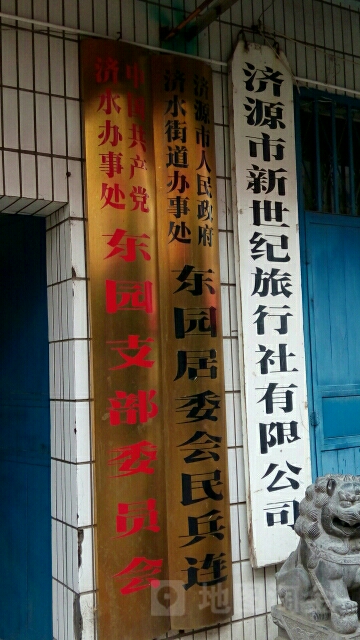 中国共产党
济水办事处
东园支部委员会
济源市人民政府
济水街道办事处
东园居委会民兵连
济源市新世纪旅行社有限公司